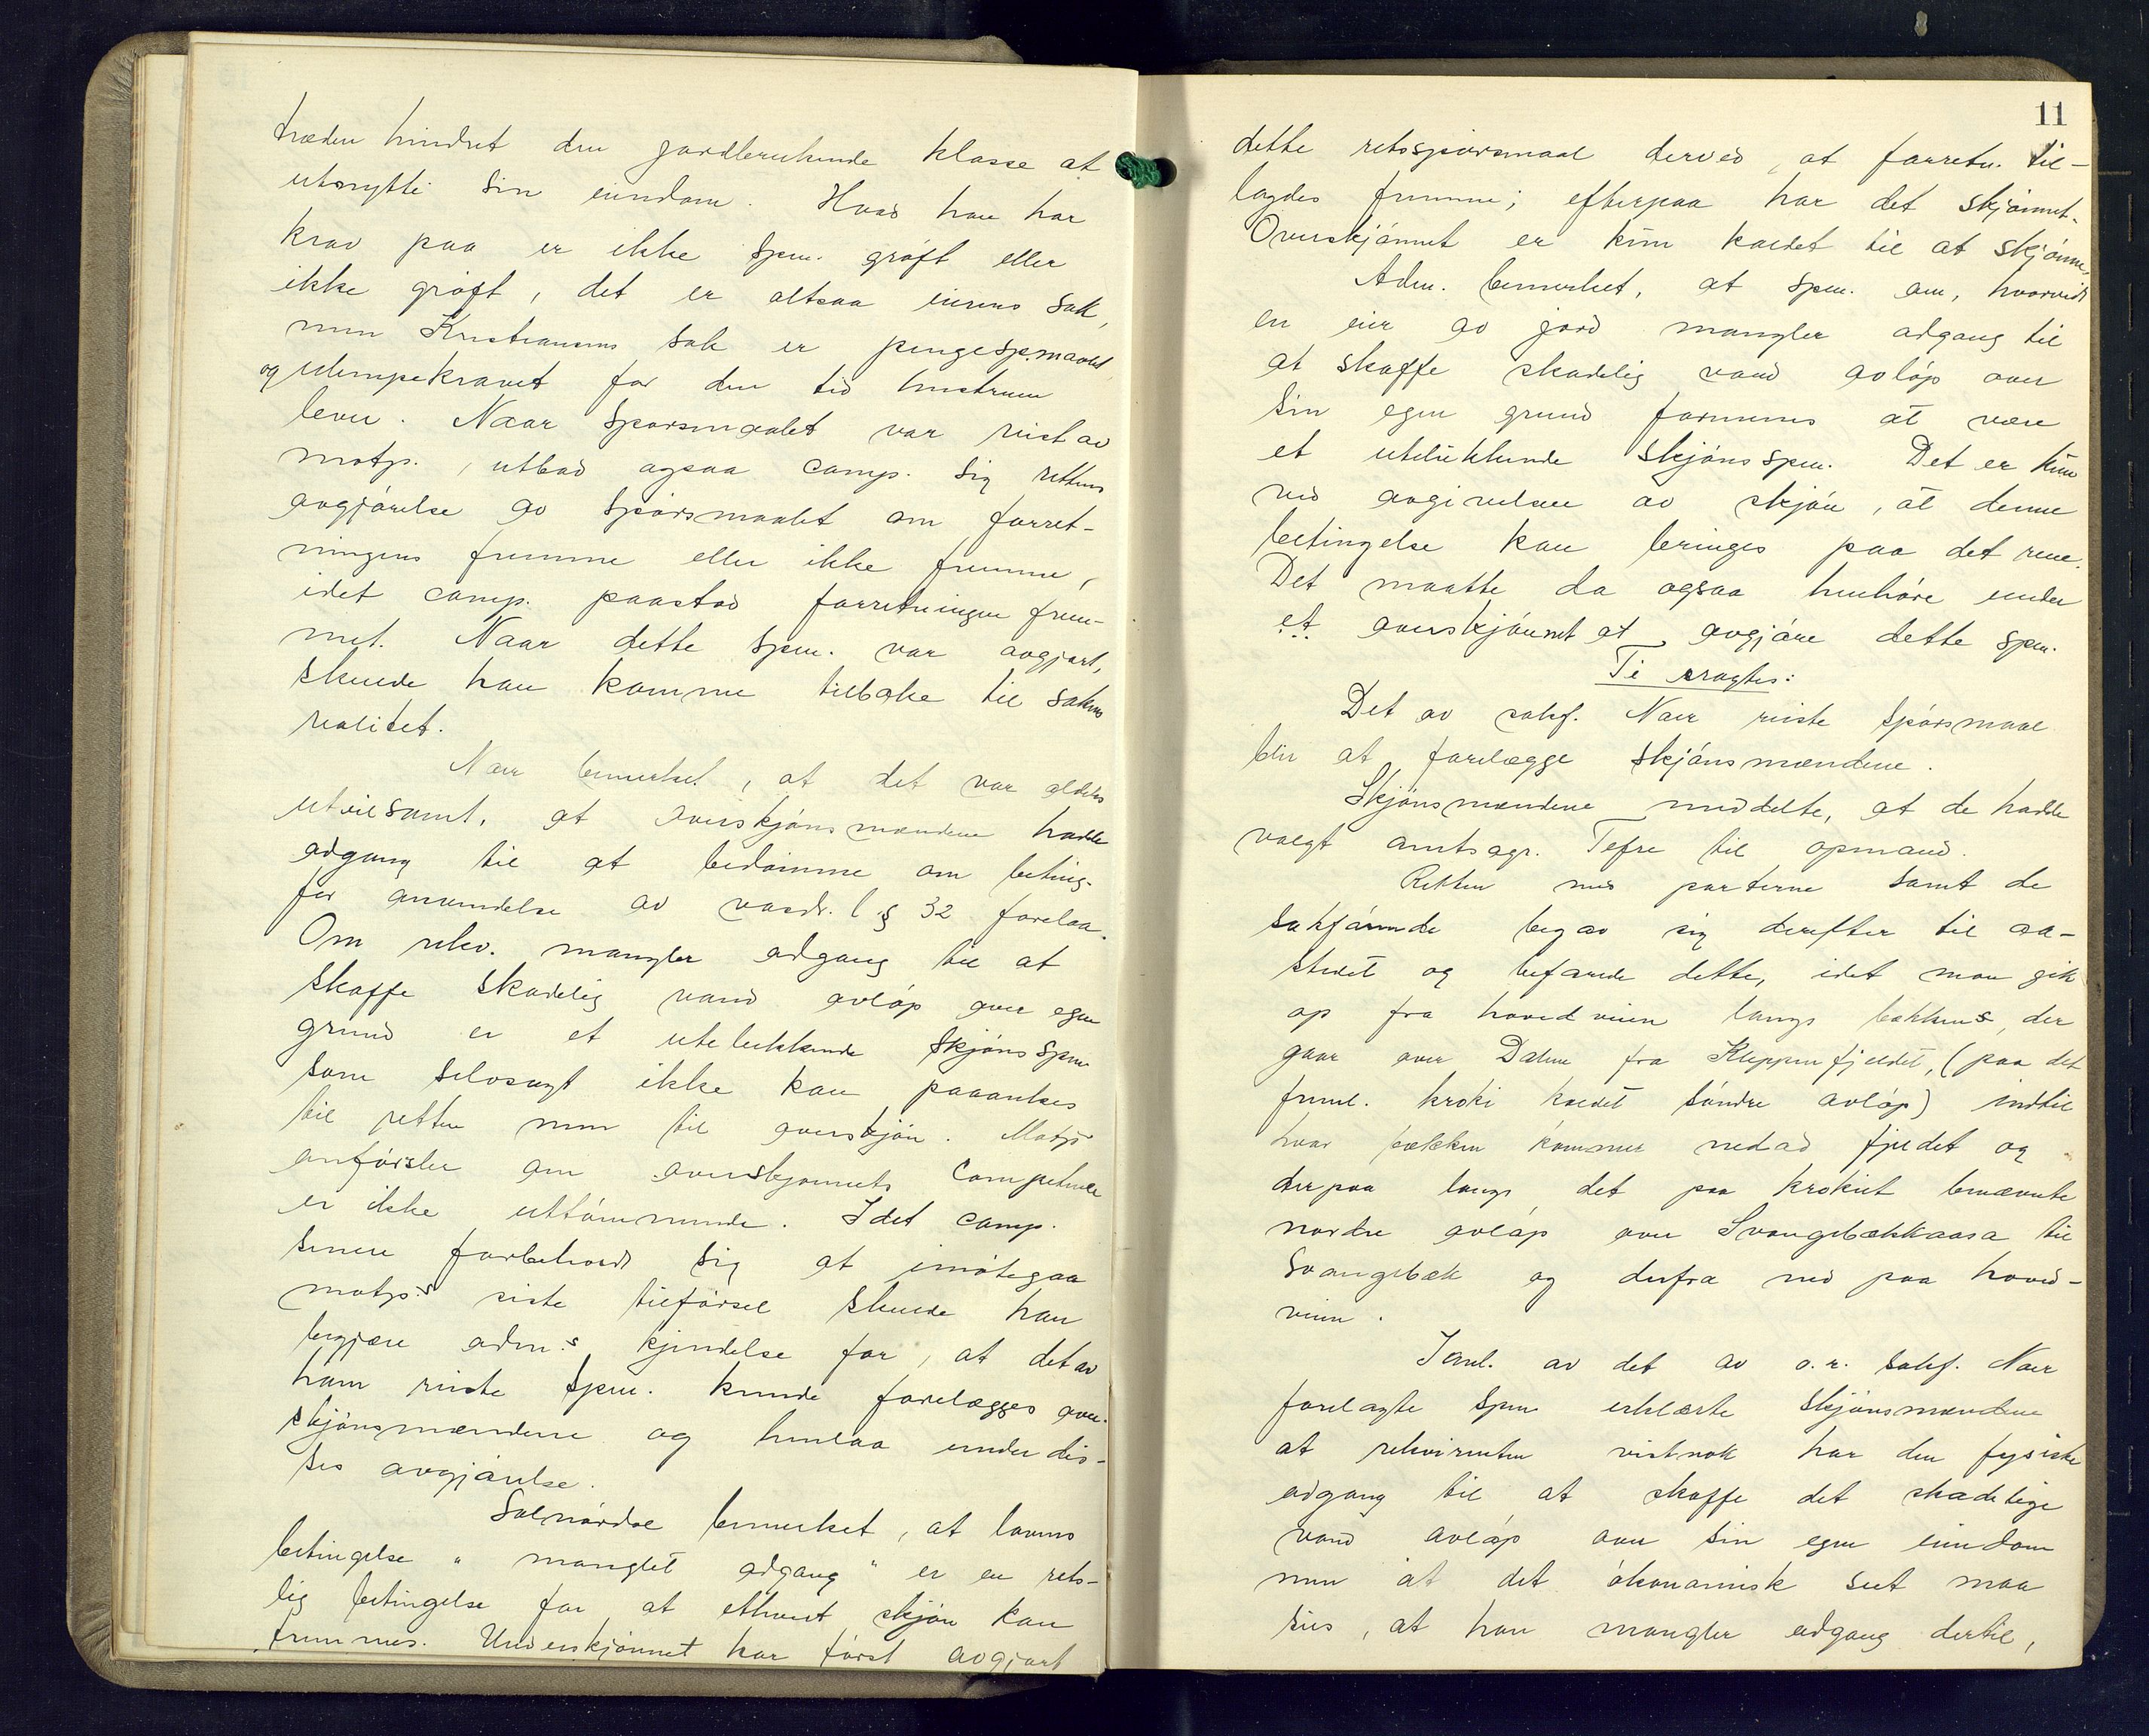 træden hindret den jordbrukende klasse at
utnytte sin eiendom. Hvad han har
krav paa er ikke spm. grøft eller
ikke grøft, det er altsaa eierens sak,
men Kristiansens sak er pengespmaalet
og ulempekravet for den tid hustruen
lever. Naar spørsmaalet var reist av
motp., utbad ogsaa comp. sig rettens
avgjørelse av spørsmaalet om forret-
ningens fremme eller ikke fremme,
idet comp. paastod forretningen frem-
met. Naar dette spm. var avgjort,
skulde han komme tilbake til sakens
realitet.
Nær bemerket, at det var aldeles
utvilsomt, at overskjønsmændene hadde
adgang til at bedømme om beting.
for anvendelse av vasdr. l § 32 forelaa.
Om rekv. mangler adgang til at
skaffe skadelig vand avløp over egen
grund er et utelukkende skjønsspm
som selvsagt ikke kan paaankes
til retten men til overskjøn. Motp's
anførsler om overskjønnets competence
er ikke uttømmende. Idet comp.
senere forbeholdt sig at imøtegaa
motp's siste tilførsel skulde han
begjære adm.s kjendelse for, at det av
ham reiste spm. kunde forelægges over-
skjønsmændene og henlaa under dis-
ses avgjørelse.
Solnørdal bemerket, at lovens
betingelse "manglet adgang" er en rets-
lig betingelse for at ethvert skjøn kan
fremmes. Underskjønnet har først avgjort
11
dette retsspørsmaal derved, at forretn. til-
lagdes fremme; efterpaa har det skjønnet.
Overskjønnet er kun kaldet til at skjønne.
Adm. bemerket, at spm. om, hvorvidt
en eier av jord mangler adgang til
at skaffe skadelig vand avløp over
sin egen grund formenes at være
et utelukkende skjønsspm. Det er kun
ved avgivelsen av skjøn, at denne
betingelse kan bringes paa det rene.
Det maatte da ogsaa henhøre under
et overskjønnet at avgjøre dette spm.
Ti eragtes:
Det av saksf. Nær reiste spørsmaal
blir at forelægge skjønsmændene.
Skjønsmændene meddelte, at de hadde
valgt amtsagr. Tefre til opmand.
Retten med parterne samt de
sakførende begav sig derefter til aa-
stedet og befarede dette, idet man gik
op fra hovedveien langs bækken, der
gaar over Dalen fra Kleppenfjeldet, (paa det
freml. kroki kaldet søndre avløp) indtil
hvor bækken kommer nedad fjeldet og
derpaa langs det paa krokiet benævnte
nordre avløp over Svangebækkaasa til
Svangebæk og derfra ned paa hoved-
veien.
I anl. av det av o.r. saksf. Nær
forelagte spm erklærte skjønsmændene
at rekvirenten vistnok har den fysiske
adgang til at skaffe det skadelige
vand avløp over sin egen eiendom
men at det økonomisk seet maa
sies, at han mangler adgang dertil,